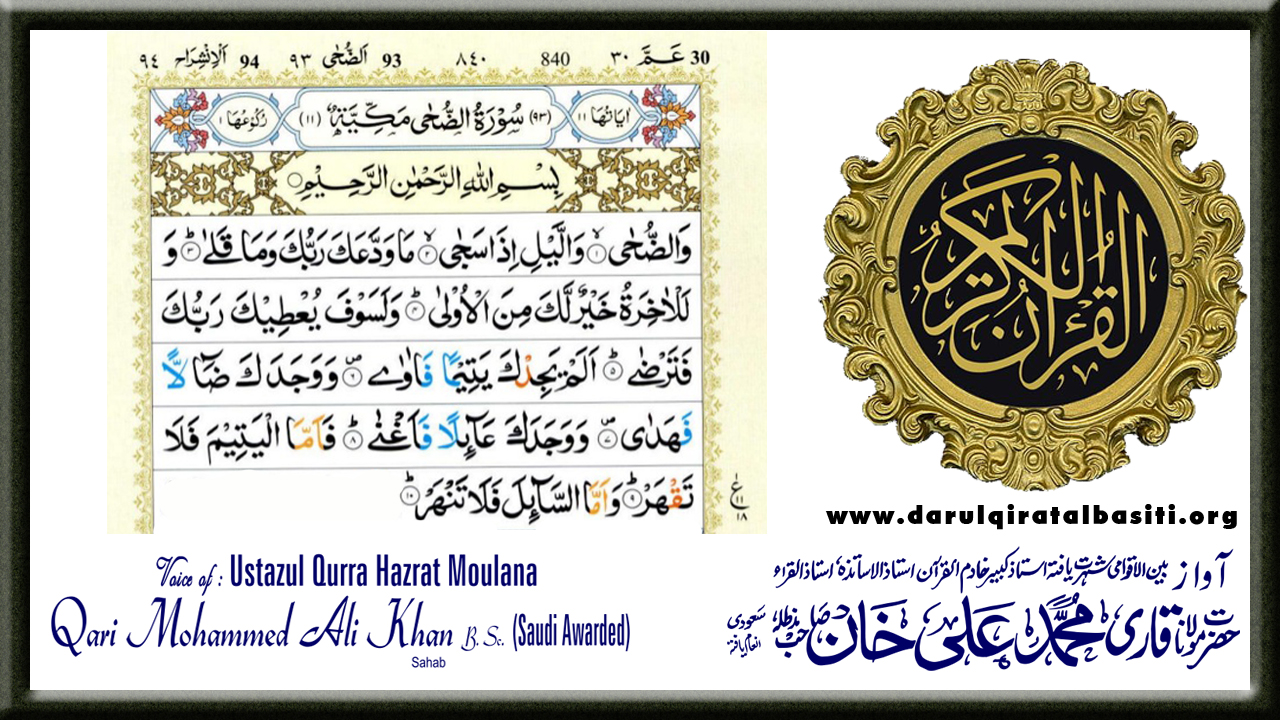 ٩٤ اَلْاِنْشِرَاح 94 ٩٣ اَلضُّحٰى 93 ٨٤٠ 840 ٣٠ عَمَّ 30
اٰيَاتُهَا ١١ (٩٣) سُوْرَةُ الضُّحٰى مَكِّيَّةٌ (١١) رُكُوْعُهَا ١
بِسْمِ اللهِ الرَّحْمٰنِ الرَّحِيْمِ
وَالضُّحٰى ۙ﴿١﴾ وَالَّيْلِ اِذَا سَجٰى ۙ﴿٢﴾ مَا وَدَّعَكَ رَبُّكَ وَمَا قَلٰى ؕ﴿٣﴾ وَ
لَلْاٰخِرَةُ خَيْرٌ لَّكَ مِنَ الْاُوْلٰى ؕ﴿٤﴾ وَلَسَوْفَ يُعْطِيْكَ رَبُّكَ
فَتَرْضٰى ؕ﴿٥﴾ اَلَمْ يَجِدْكَ يَتِيْمًا فَاٰوٰى ۪﴿٦﴾ وَوَجَدَكَ ضَآلًّا
فَهَدٰى ۪﴿٧﴾ وَوَجَدَكَ عَآئِلًا فَاَغْنٰى ؕ﴿٨﴾ فَاَمَّا الْيَتِيْمَ فَلَا
تَقْهَرْ ؕ﴿٩﴾ وَاَمَّا السَّآئِلَ فَلَا تَنْهَرْ ؕ﴿١٠﴾
ع ١١ ١٨
القرآن الكريم
www.darulqiratalbasiti.org
Voice of : Ustazul Qurra Hazrat Moulana
Qari Mohammed Ali Khan B. Sc. (Saudi Awarded)
Sahab
آواز بین الاقوامی شہرت یافتہ استاذ کبیر خادم القرآن استاذ الاساتذہ استاذ القراء
حضرت مولانا قاری محمد علی خان صاحب مدظلہ سعودی انعام یافتہ